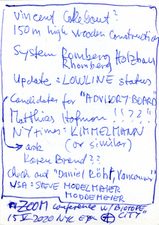 Vincent Callebaut?
150m high wooden construction
System Romberg Holzbau
Rhomberg
Update: LOWLINE status
Candidates for "ADVISORY BOARD"
Matthias Hofmann !!??"
NYTimes: KIMMELMANN
(or similar)
ask
Karen Brand??
Check out "Daniel Röhr, Vancouver"
USA: STEVE MODELMEIER
MODDEMEIER
ZOOM conference w/ BIOTOPE
CITY
15 V 2020 NYC